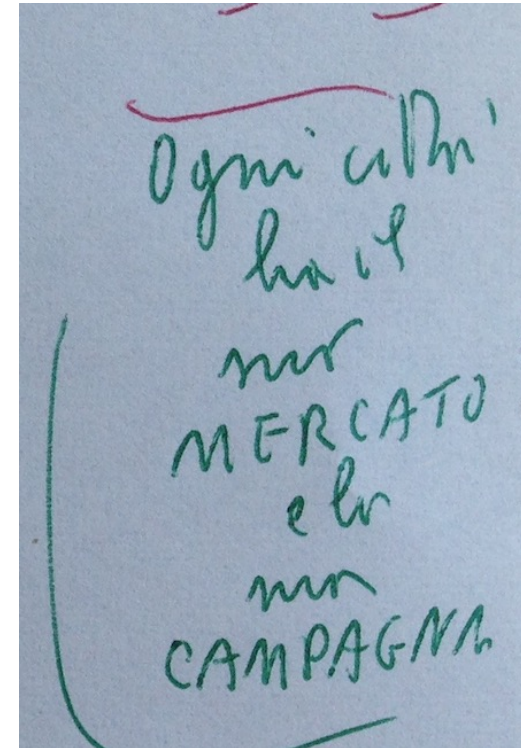 Ogni città
ha il
suo
MERCATO
e la
sua
CAMPAGNA